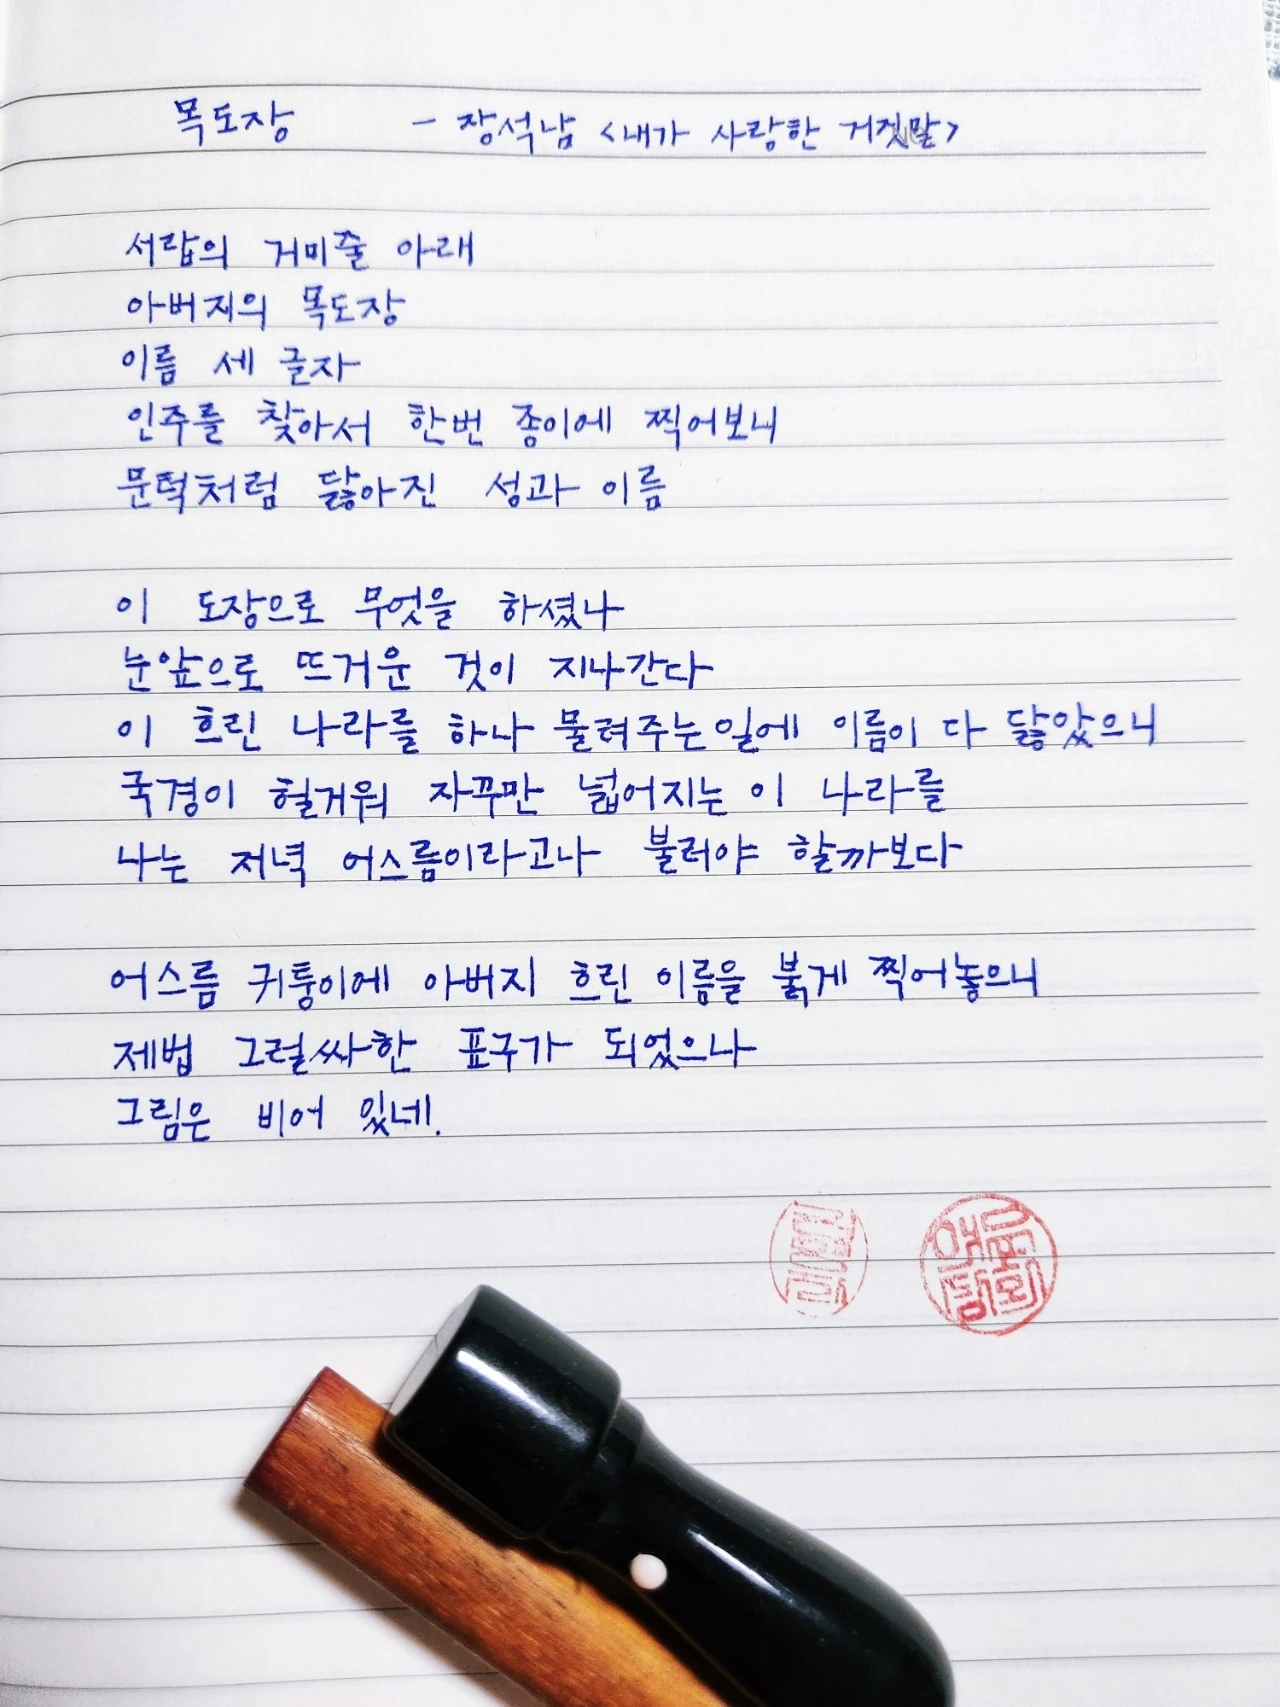 목도장 - 장석남 <내가 사랑한 거짓말>
서랍의 거미줄 아래
아버지의 목도장
이름 세 글자
인주를 찾아서 한번 종이에 찍어보니
문턱처럼 닳아진 성과 이름
이 도장으로 무엇을 하셨나
눈앞으로 뜨거운 것이 지나간다
이 흐린 나라를 하나 물려주는일에 이름이 다 닳았으니
국경이 헐거워 자꾸만 넓어지는 이 나라를
나는 저녁 어스름이라고나 불러야 할까보다
어스름 귀퉁이에 아버지 흐린 이름을 붉게 찍어놓으니
제법 그럴싸한 표구가 되었으나
그림은 비어 있네.